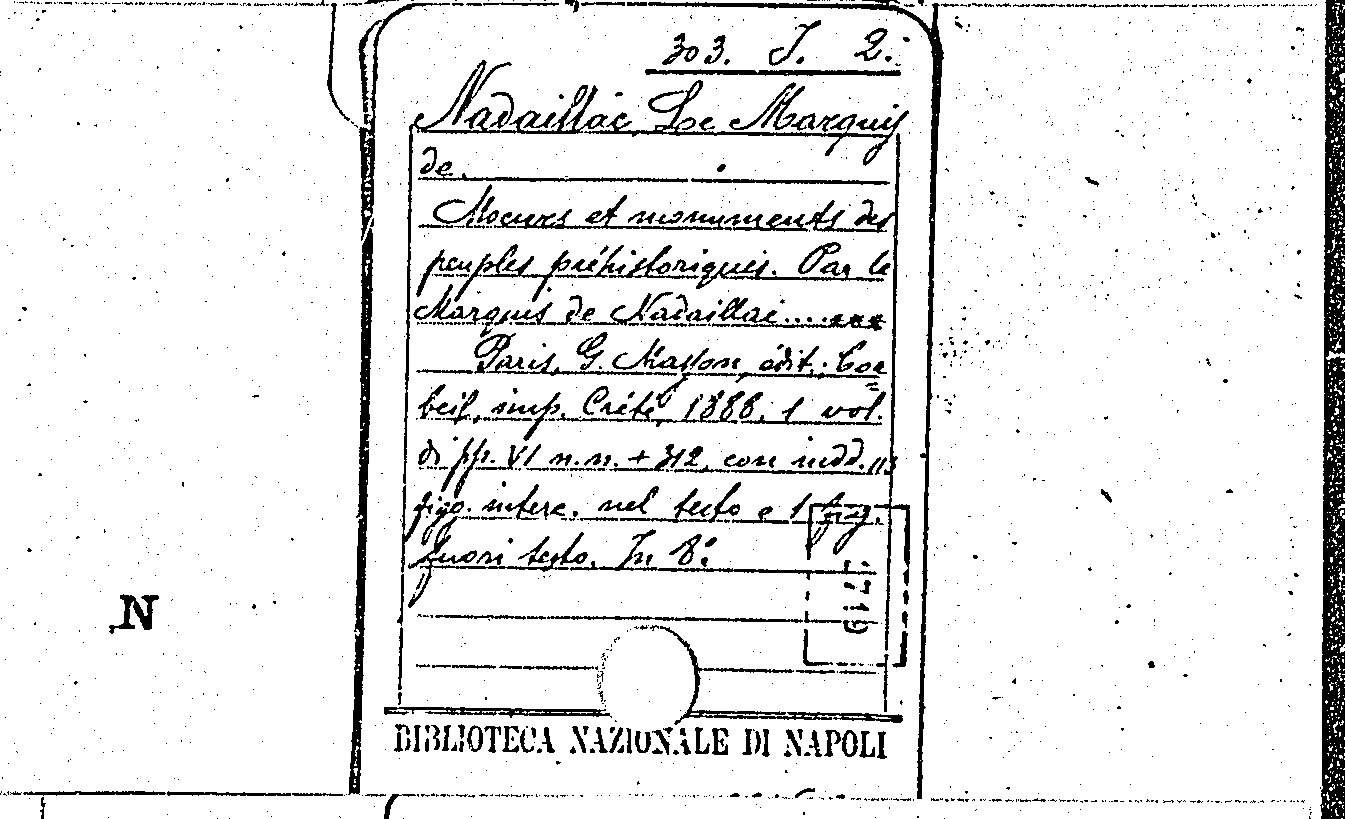 303. J. 2.
Nadaillac, Le Marquis
de.
Moeurs et monuments des
peuples préhistoriques. Par le
Marquis de Nadaillac....***
Paris, G. Masson, édit.; Cor=
beil, imp. Crété, 1888, 1 vol.
di pp. VI n.n. + 312, con indd. 113
figg. interc. nel testo e 1 fig.
fuori testo. In 8.°
N
BIBLIOTECA NAZIONALE DI NAPOLI